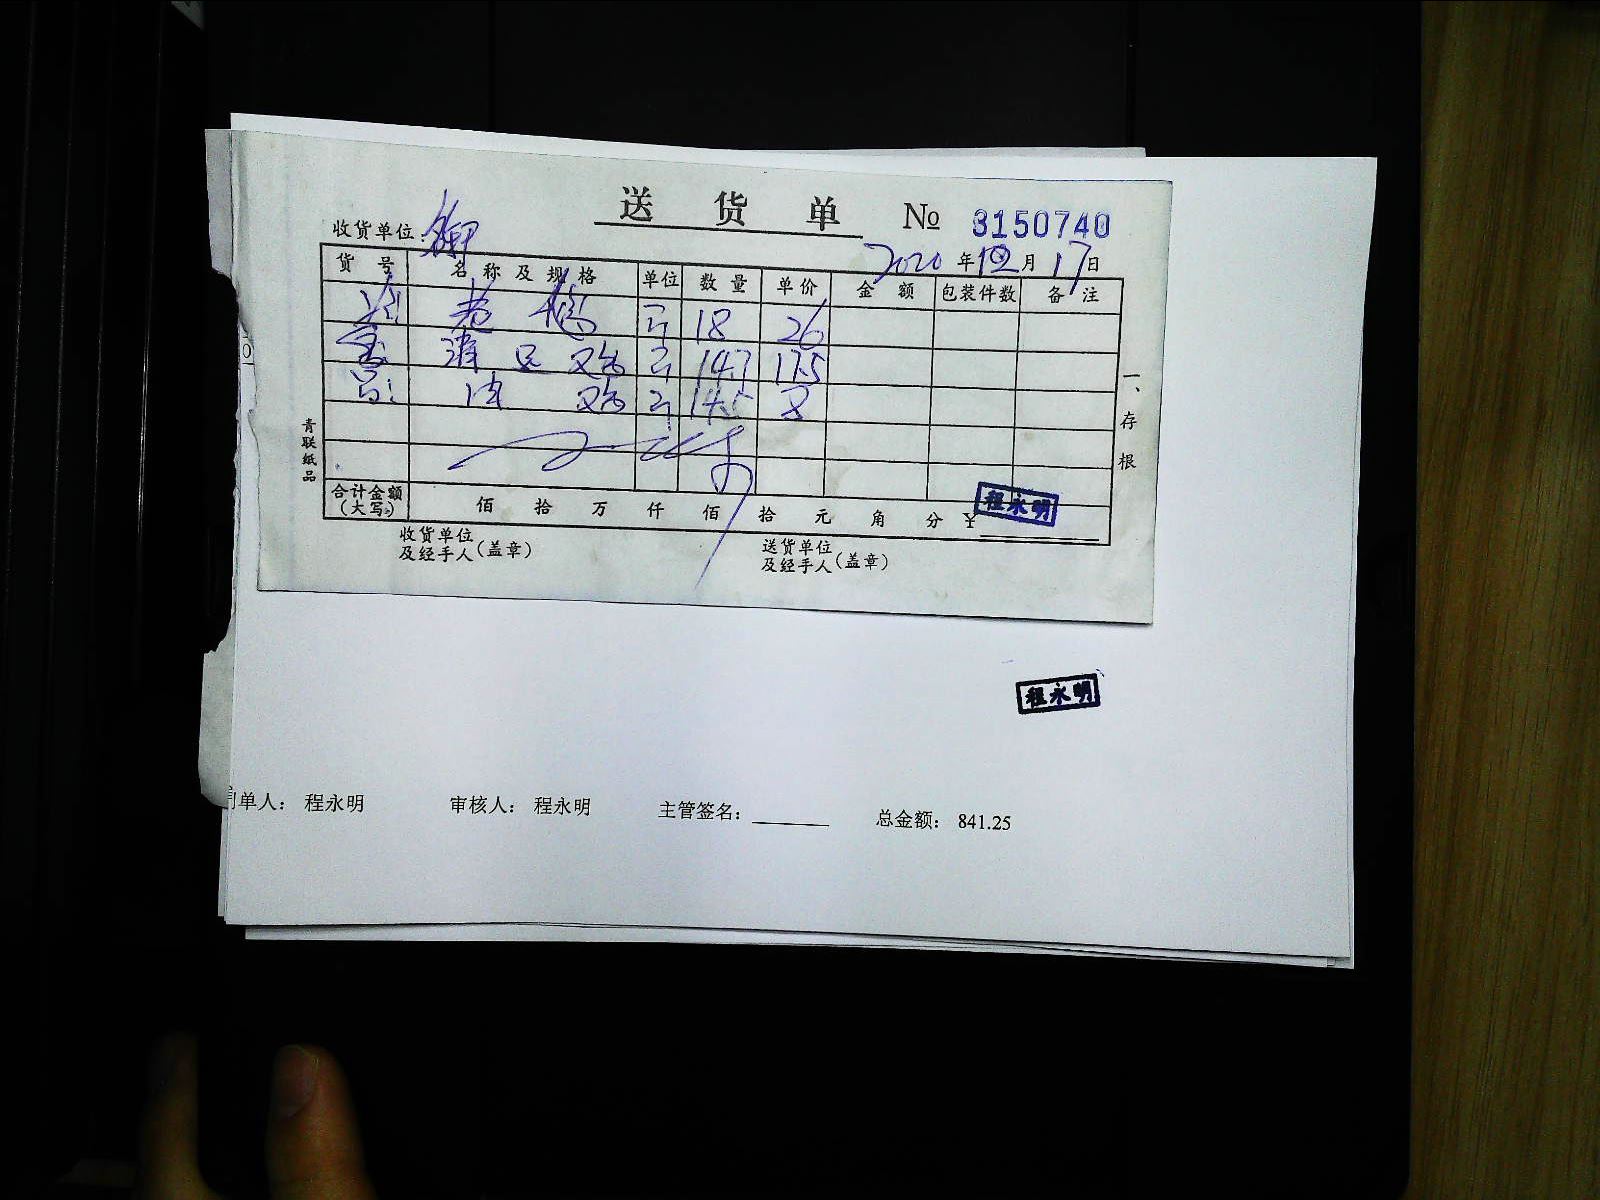 送 货 单 № 3150740
收货单位:
2020 年 12 月 17 日
货 号 名 称 及 规 格 单位 数 量 单价 金 额 包装件数 备 注
老鸭 斤 18 26
斤 14.7 17.5
鸡 斤 14.5 8
合计金额(大写) 佰 拾 万 仟 佰 拾 元 角 分 ¥
程永明
收货单位及经手人(盖章) 送货单位及经手人(盖章)
青联纸品
一、存根
程永明
制单人: 程永明 审核人: 程永明 主管签名: 总金额: 841.25